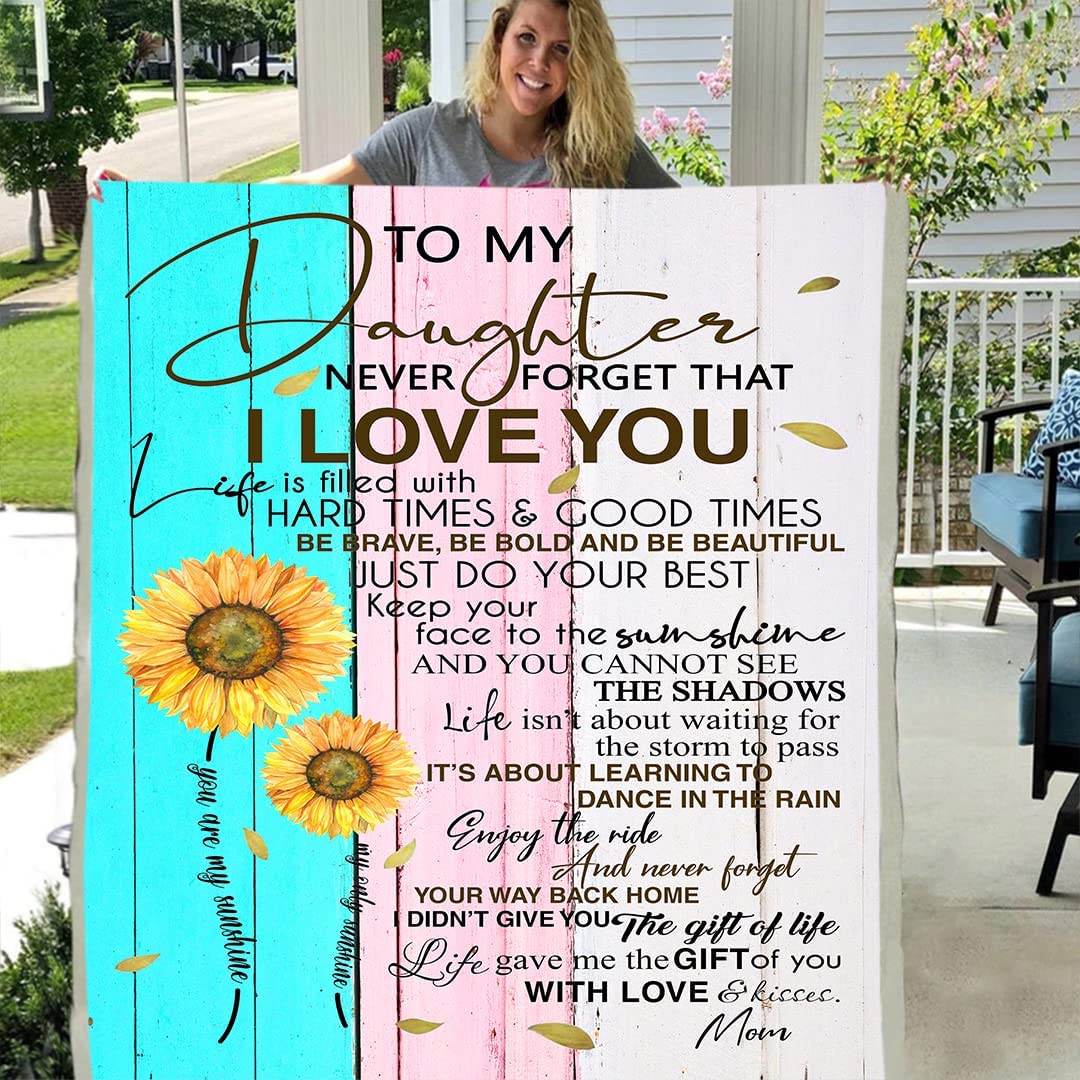 TO MY
Daughter
NEVER FORGET THAT
I LOVE YOU
Life is filled with
HARD TIMES & GOOD TIMES
BE BRAVE, BE BOLD AND BE BEAUTIFUL
JUST DO YOUR BEST
Keep your
face to the sumshime
AND YOU CANNOT SEE
THE SHADOWS
Life isn't about waiting for
the storm to pass
IT'S ABOUT LEARNING TO
DANCE IN THE RAIN
Enjoy the ride
And never forget
YOUR WAY BACK HOME
I DIDN'T GIVE YOU The gift of life
Life gave me the GIFT of you
WITH LOVE & kisses.
Mom
you are my sunshine
my only sunshine